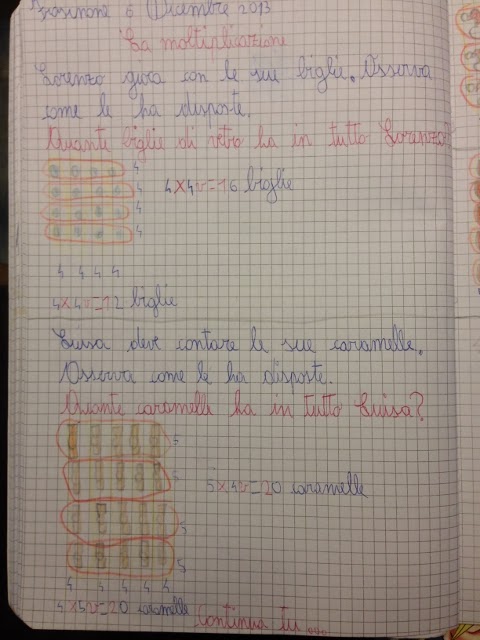 Frosinone 6 Dicembre 2013
La moltiplicazione
Lorenzo gioca con le sue biglie. Osserva
come le ha disposte.
Quante biglie di vetro ha in tutto Lorenzo?
4
4 4x4v=16 biglie
4
4
4 4 4 4
4x4v=12 biglie
Luisa deve contare le sue caramelle.
Osserva come le ha disposte.
Quante caramelle ha in tutto Luisa?
5
5 5x4v=20 caramelle
5
5
4 4 4 4 4
4x5v=20 caramelle Continua tu...